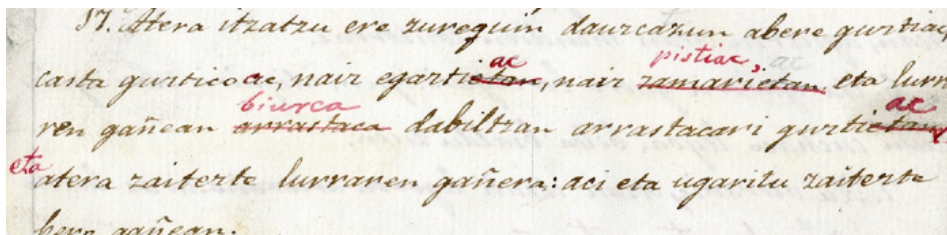 17. Atera itzatzu ere zurequin daurcazun abere gurtiac,
ac pistiac, ac
casta gurticoac, naiz egartietan, naiz zamarietan eta lurr
biurca ac
ren gañean arrastaca dabiltzan arrastacari gurtietan
eta atera zaiterte lurraren gañera: aci eta ugaritu zaiterte
bere gañean.